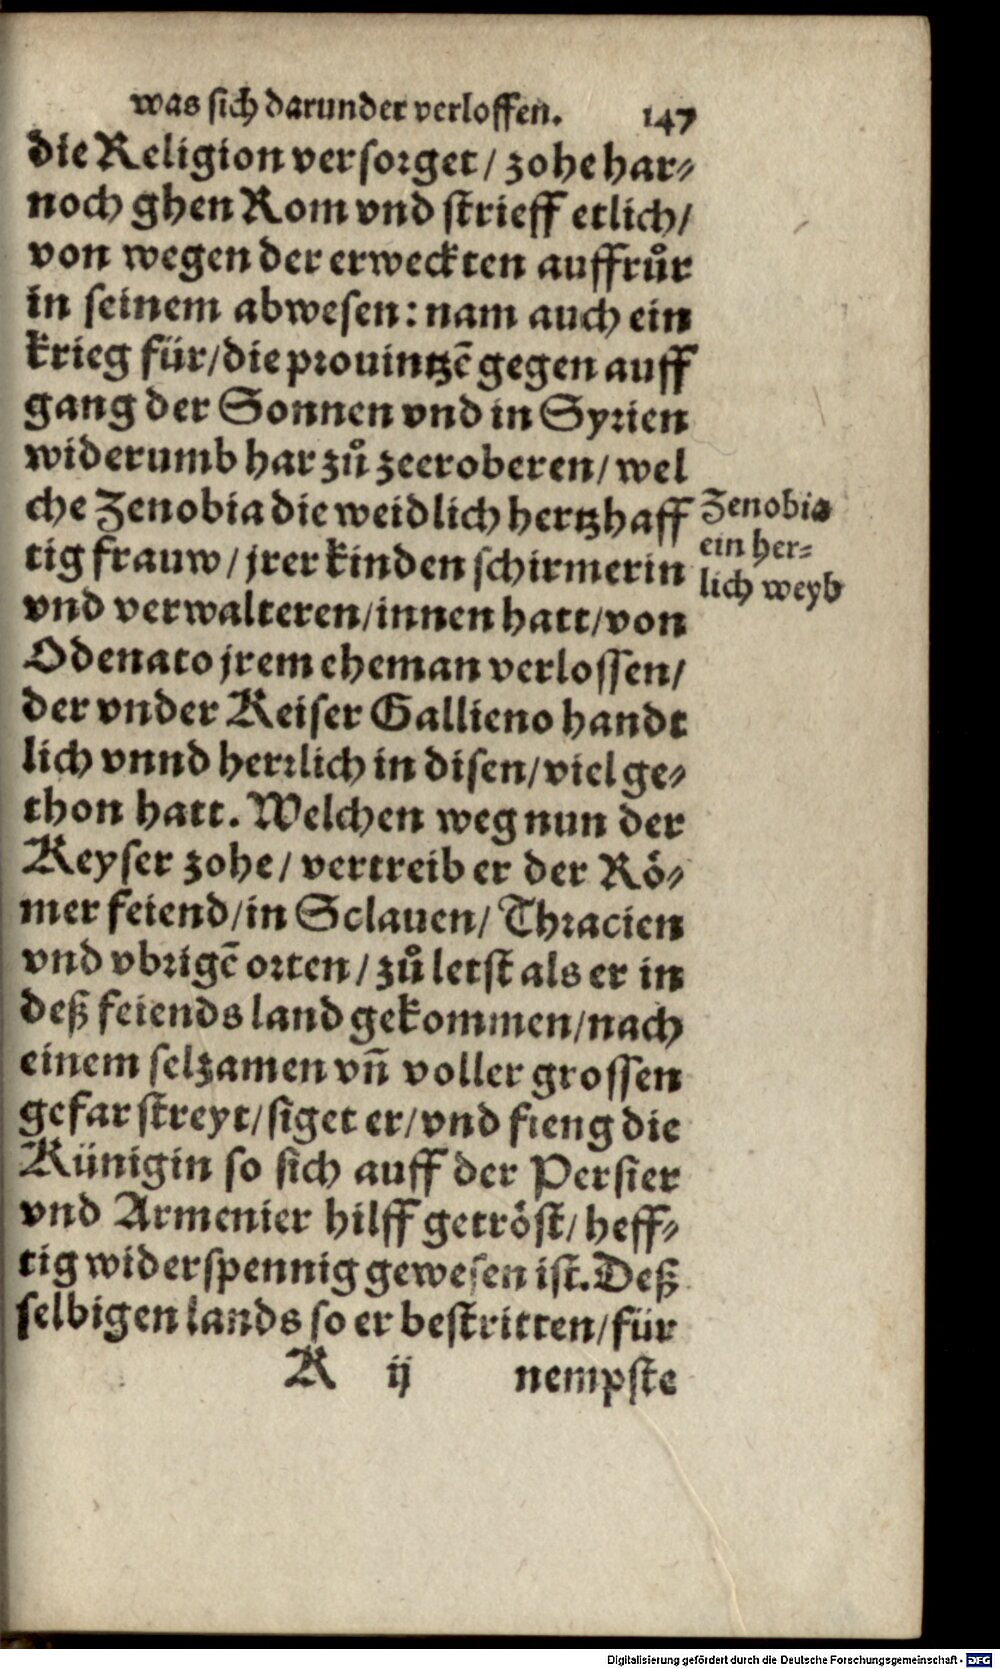 was sich darunder verloffen. 147
die Religion versorget / zohe har⸗
noch ghen Rom vnd strieff etlich /
von wegen der erweckten auffruͦr
in seinem abwesen: nam auch ein
krieg für / die prouintzẽ gegen auff
gang der Sonnen vnd in Syrien
widerumb har zuͦ zeeroberen / wel
che Zenobia die weidlich hertzhaff
tig frauw / jrer kinden schirmerin
vnd verwalteren / innen hatt / von
Odenato jrem eheman verlossen /
der vnder Keiser Gallieno handt
lich vnnd herrlich in disen / viel ge⸗
thon hatt. Welchen weg nun der
Keyser zohe / vertreib er der Rö⸗
mer feiend / in Sclauen / Thracien
vnd vbrigẽ orten / zuͦ letst als er in
deß feiends land gekommen / nach
einem selzamen vñ voller grossen
gefar streyt / siget er / vnd fieng die
Künigin so sich auff der Persier
vnd Armenier hilff getröst / heff⸗
tig widerspennig gewesen ist. Deß
selbigen lands so er bestritten / für
K ij nempste
Zenobia
ein her⸗
lich weyb
Digitalisierung gefördert durch die Deutsche Forschungsgemeinschaft - DFG